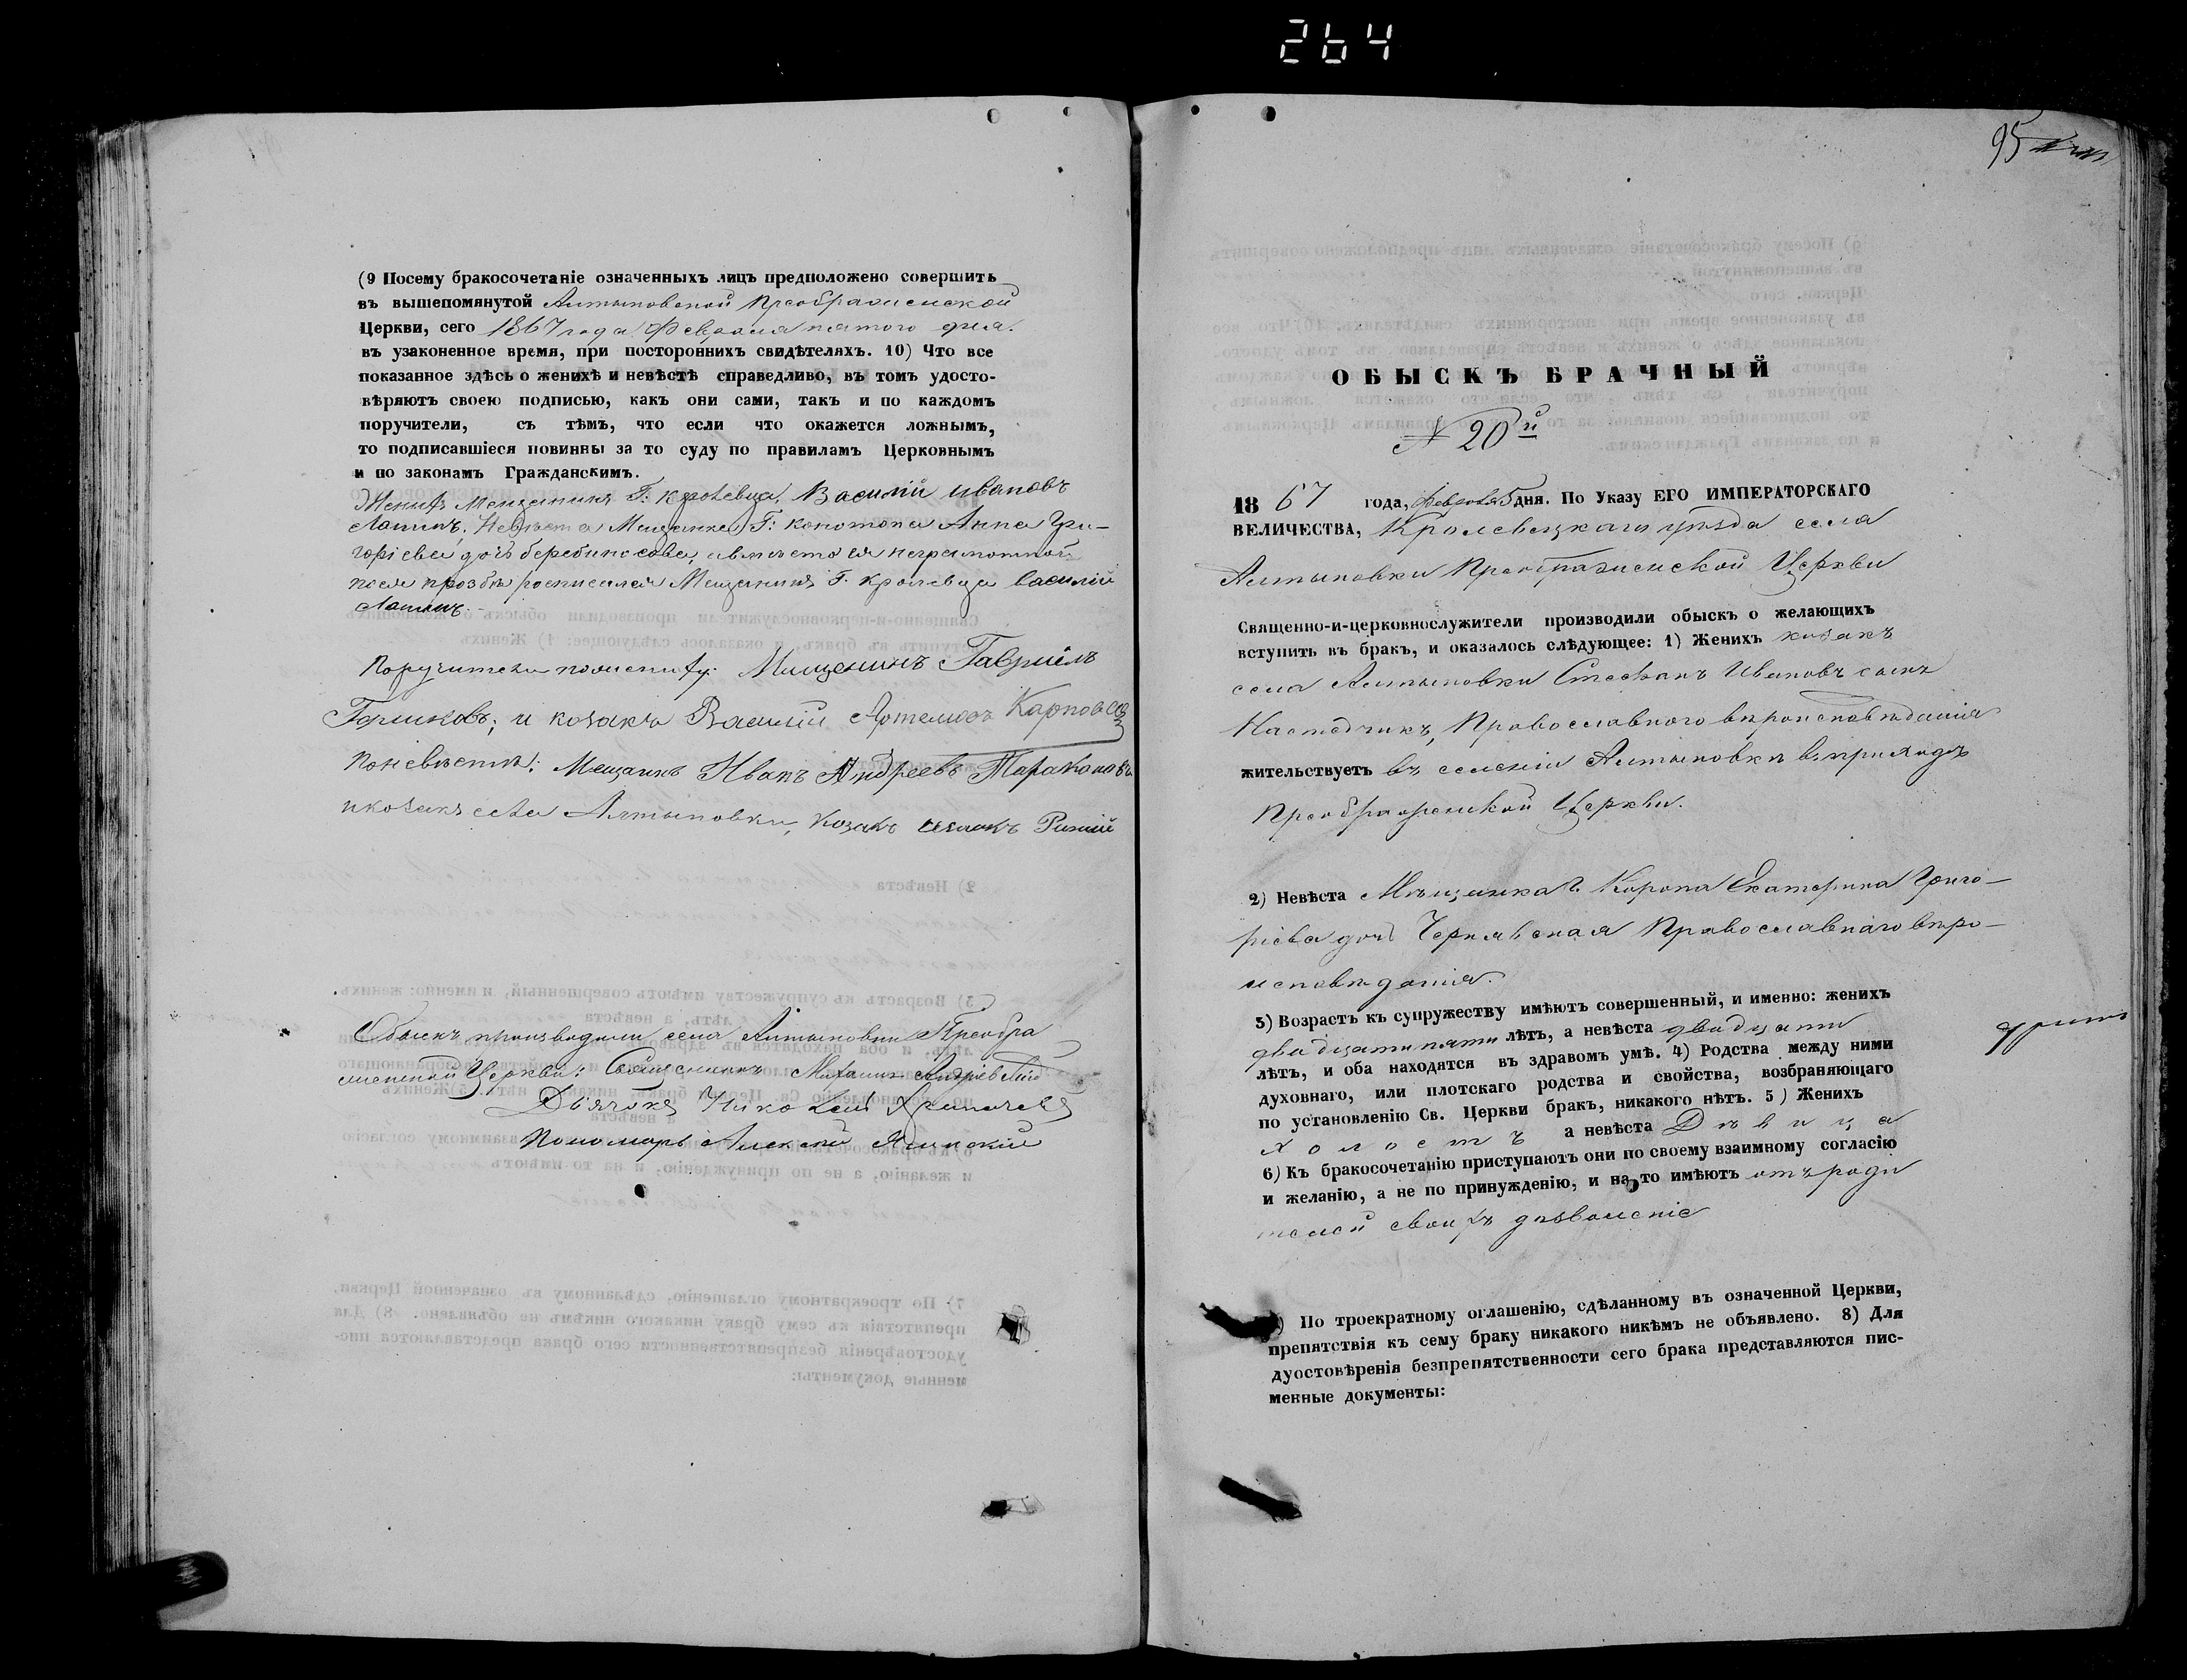 264
(9 Посему бракосочетаніе означенныхъ лицъ предположено совершить
въ вышепомянутой Алтыновской Преображенской
Церкви, сего 1867 года Февраля пятого дня.
въ узаконенное время, при постороннихъ свидѣтеляхъ. 10) Что все
показанное здѣсь о женихѣ и невѣстѣ справедливо, въ томъ удосто-
вѣряютъ своею подписью, какъ они сами, такъ и по каждомъ
поручители, съ тѣмъ, что если что окажется ложнымъ,
то подписавшіеся повинны за то суду по правиламъ Церковнымъ
и по законамъ Гражданскимъ.
Женихъ Мещанинъ Г: Кролевца Василій Ивановъ
Лашинъ. Невѣста Мещанка Г: Конотопа Анна Гри-
горіева дочь вместо ея неграмотной
росписался Мещанинъ Г. Кролевца Василій
Лашинъ.
Поручители по женихѣ: Мещенинъ Гавриилъ
и козакъ Василій Артемовъ Карповец
По невѣстѣ: Мещаинъ Иванъ Андреевъ Таракановъ
и козакъ села Алтыновки, Козакъ
Обыскъ производили села Алтыновки Преобра
женской Церкви: Священникъ Михаилъ
Дьячокъ Николай
Пономарь Алексей
95
ОБЫСКЪ БРАЧНЫЙ
№ 20й
1867 года, Февраля 5 дня. По Указу ЕГО ИМПЕРАТОРСКАГО
ВЕЛИЧЕСТВА, Кролевецкаго уѣзда села
Алтыновки Преображенской Церкви
Священно-и-церковнослужители производили обыскъ о желающихъ
вступить въ бракъ, и оказалось слѣдующее: 1) Женихъ козакъ
села Алтыновки Стефанъ Ивановъ сынъ
Православного вѣроисповѣданія
жительствуетъ въ селеніи Алтыновкѣ въ приходѣ
Преображенской Церкви.
2) Невѣста Мѣщанка г. Коропа Екатерина Григо-
ріева дочь Чернявская Православнаго вѣро-
исповѣданія.
3) Возрастъ къ супружеству имѣютъ совершенный, и именно: женихъ
двадцати пяти лѣтъ, а невѣста двадцати
лѣтъ, и оба находятся въ здравомъ умѣ. 4) Родства между ними
духовнаго, или плотскаго родства и свойства, возбраняющаго
по установленію Св. Церкви бракъ, никакого нѣтъ. 5) Женихъ
холостъ а невѣста Дѣвица
6) Къ бракосочетанію приступаютъ они по своему взаимному согласію
и желанію, а не по принужденію, и на то имѣютъ отъ роди
телей своихъ дозволеніе
По троекратному оглашенію, сдѣланному въ означенной Церкви,
препятствія къ сему браку никакого никѣмъ не объявлено. 8) Для
дуостовѣренія безпрепятственности сего брака представляются пис-
менные документы: